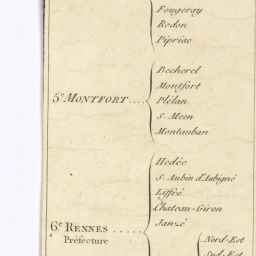 Fougeray
Redon
Pipriac
Becherel
Montfort
5e MONTFORT .... Plélan
S. Meen
Montauban
Hedée
S. Aubin d'Aubigné
Liffré
Chateau-Giron
6e RENNES ..... Janzé
Préfecture
Nord-Est
Sud-Est